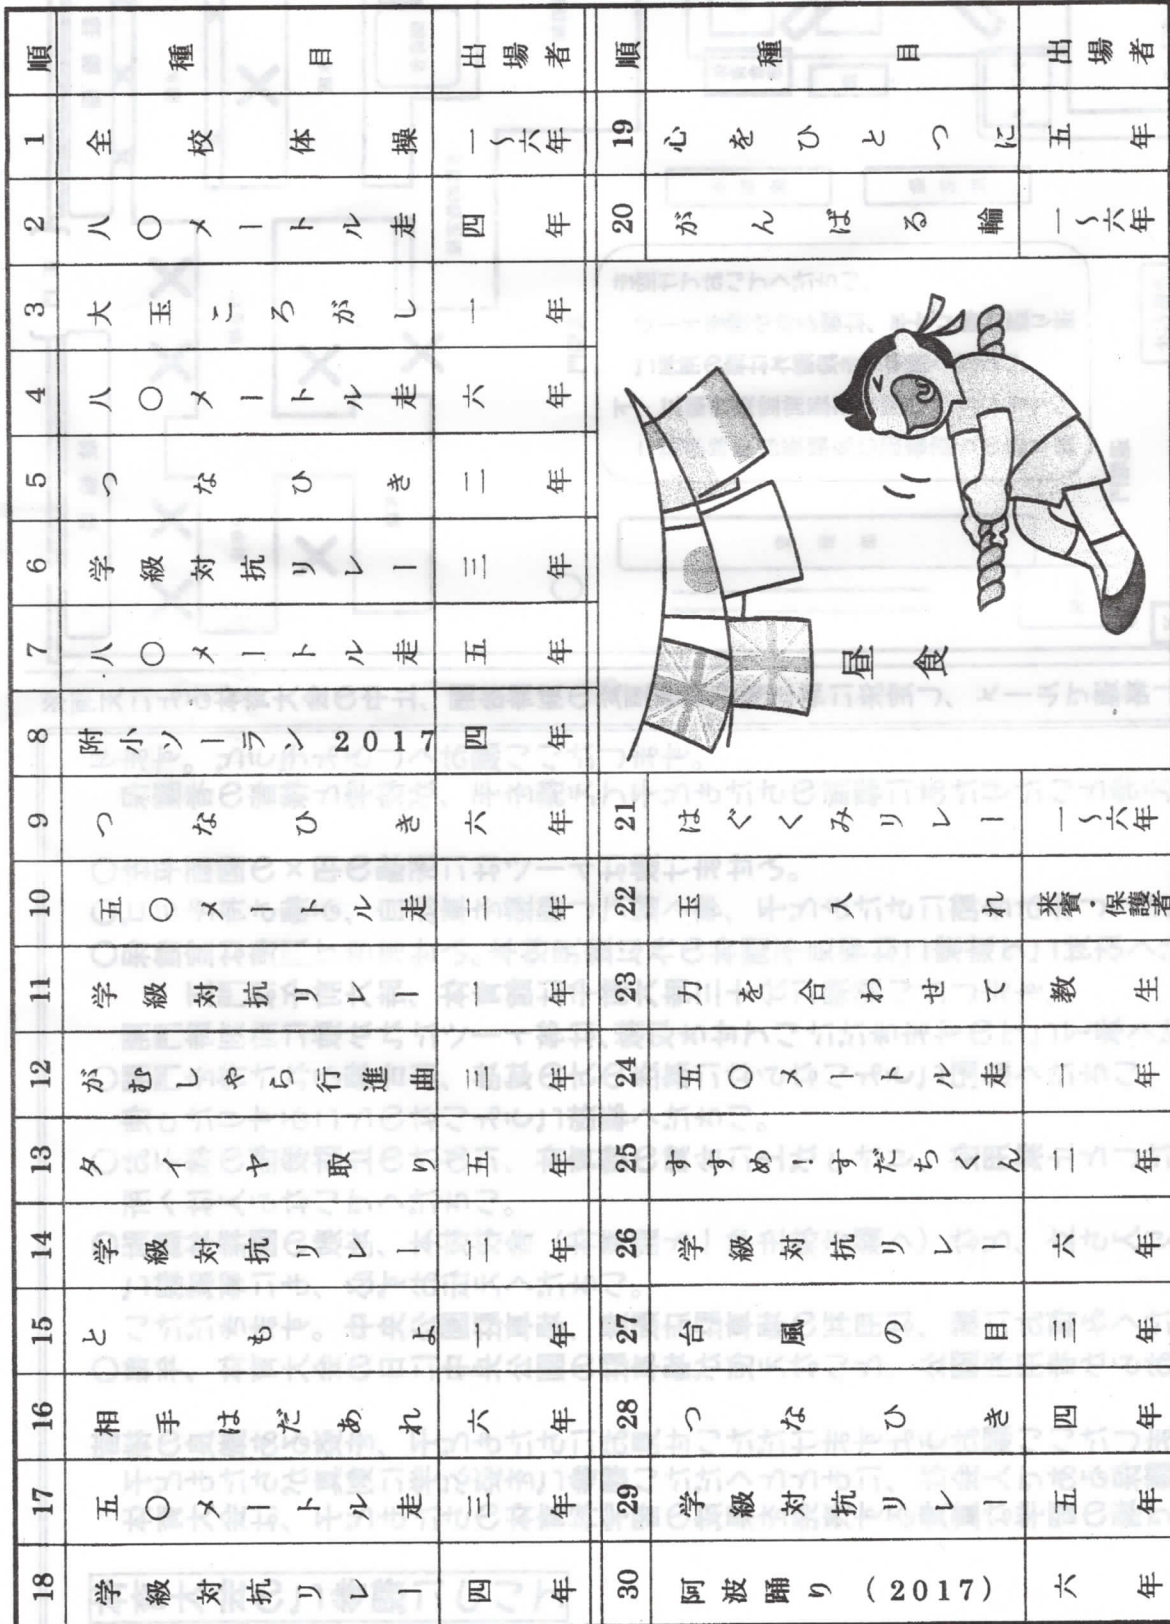 順 種目 出場者
1 全校体操 一～六年
2 八〇メートル走 四年
3 大玉ころがし 一年
4 八〇メートル走 六年
5 つなひき 二年
6 学級対抗リレー 三年
7 八〇メートル走 五年
8 附小ソーラン2017 四年
9 つなひき 六年
10 五〇メートル走 二年
11 学級対抗リレー 一年
12 がむしゃら行進曲 三年
13 タイヤ取り 五年
14 学級対抗リレー 二年
15 ともよ 一年
16 相手はだあれ 六年
17 五〇メートル走 三年
18 学級対抗リレー 四年
順 種目 出場者
19 心をひとつに 五年
20 がんばる輪 一～六年
昼食
21 はぐくみリレー 一～六年
22 玉入れ 来賓 保護者
23 力を合わせて 教生
24 五〇メートル走 一年
25 すすめ！すだちくん 二年
26 学級対抗リレー 六年
27 台風の目 三年
28 つなひき 四年
29 学級対抗リレー 五年
30 阿波踊り（2017） 六年